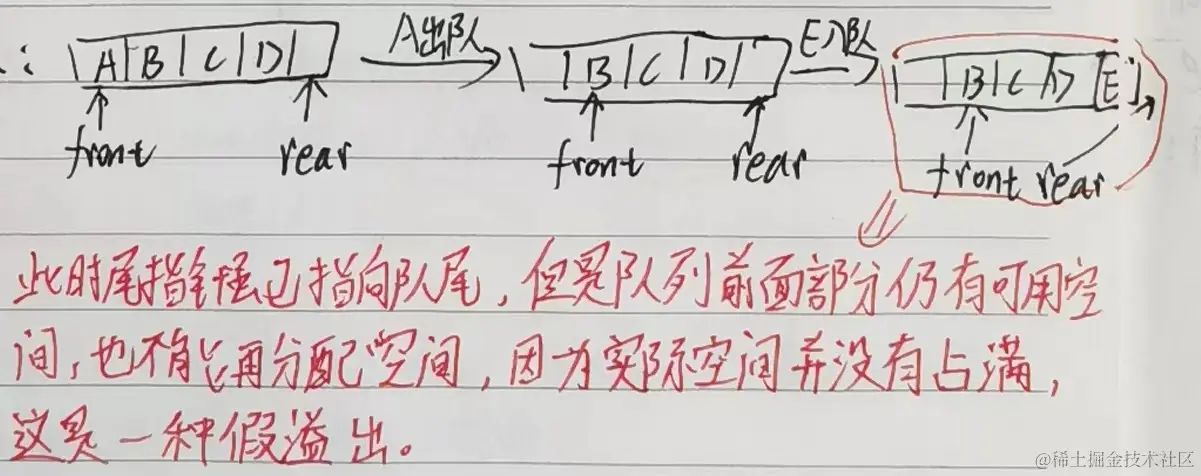 A出队 E入队
A B C D B C D B C D E
front rear front rear front rear
此时尾指针虽已指向队尾，但是队列前面部分仍有可用空
间，也不能再分配空间，因为实际空间并没有占满，
这是一种假溢出。
@稀土掘金技术社区